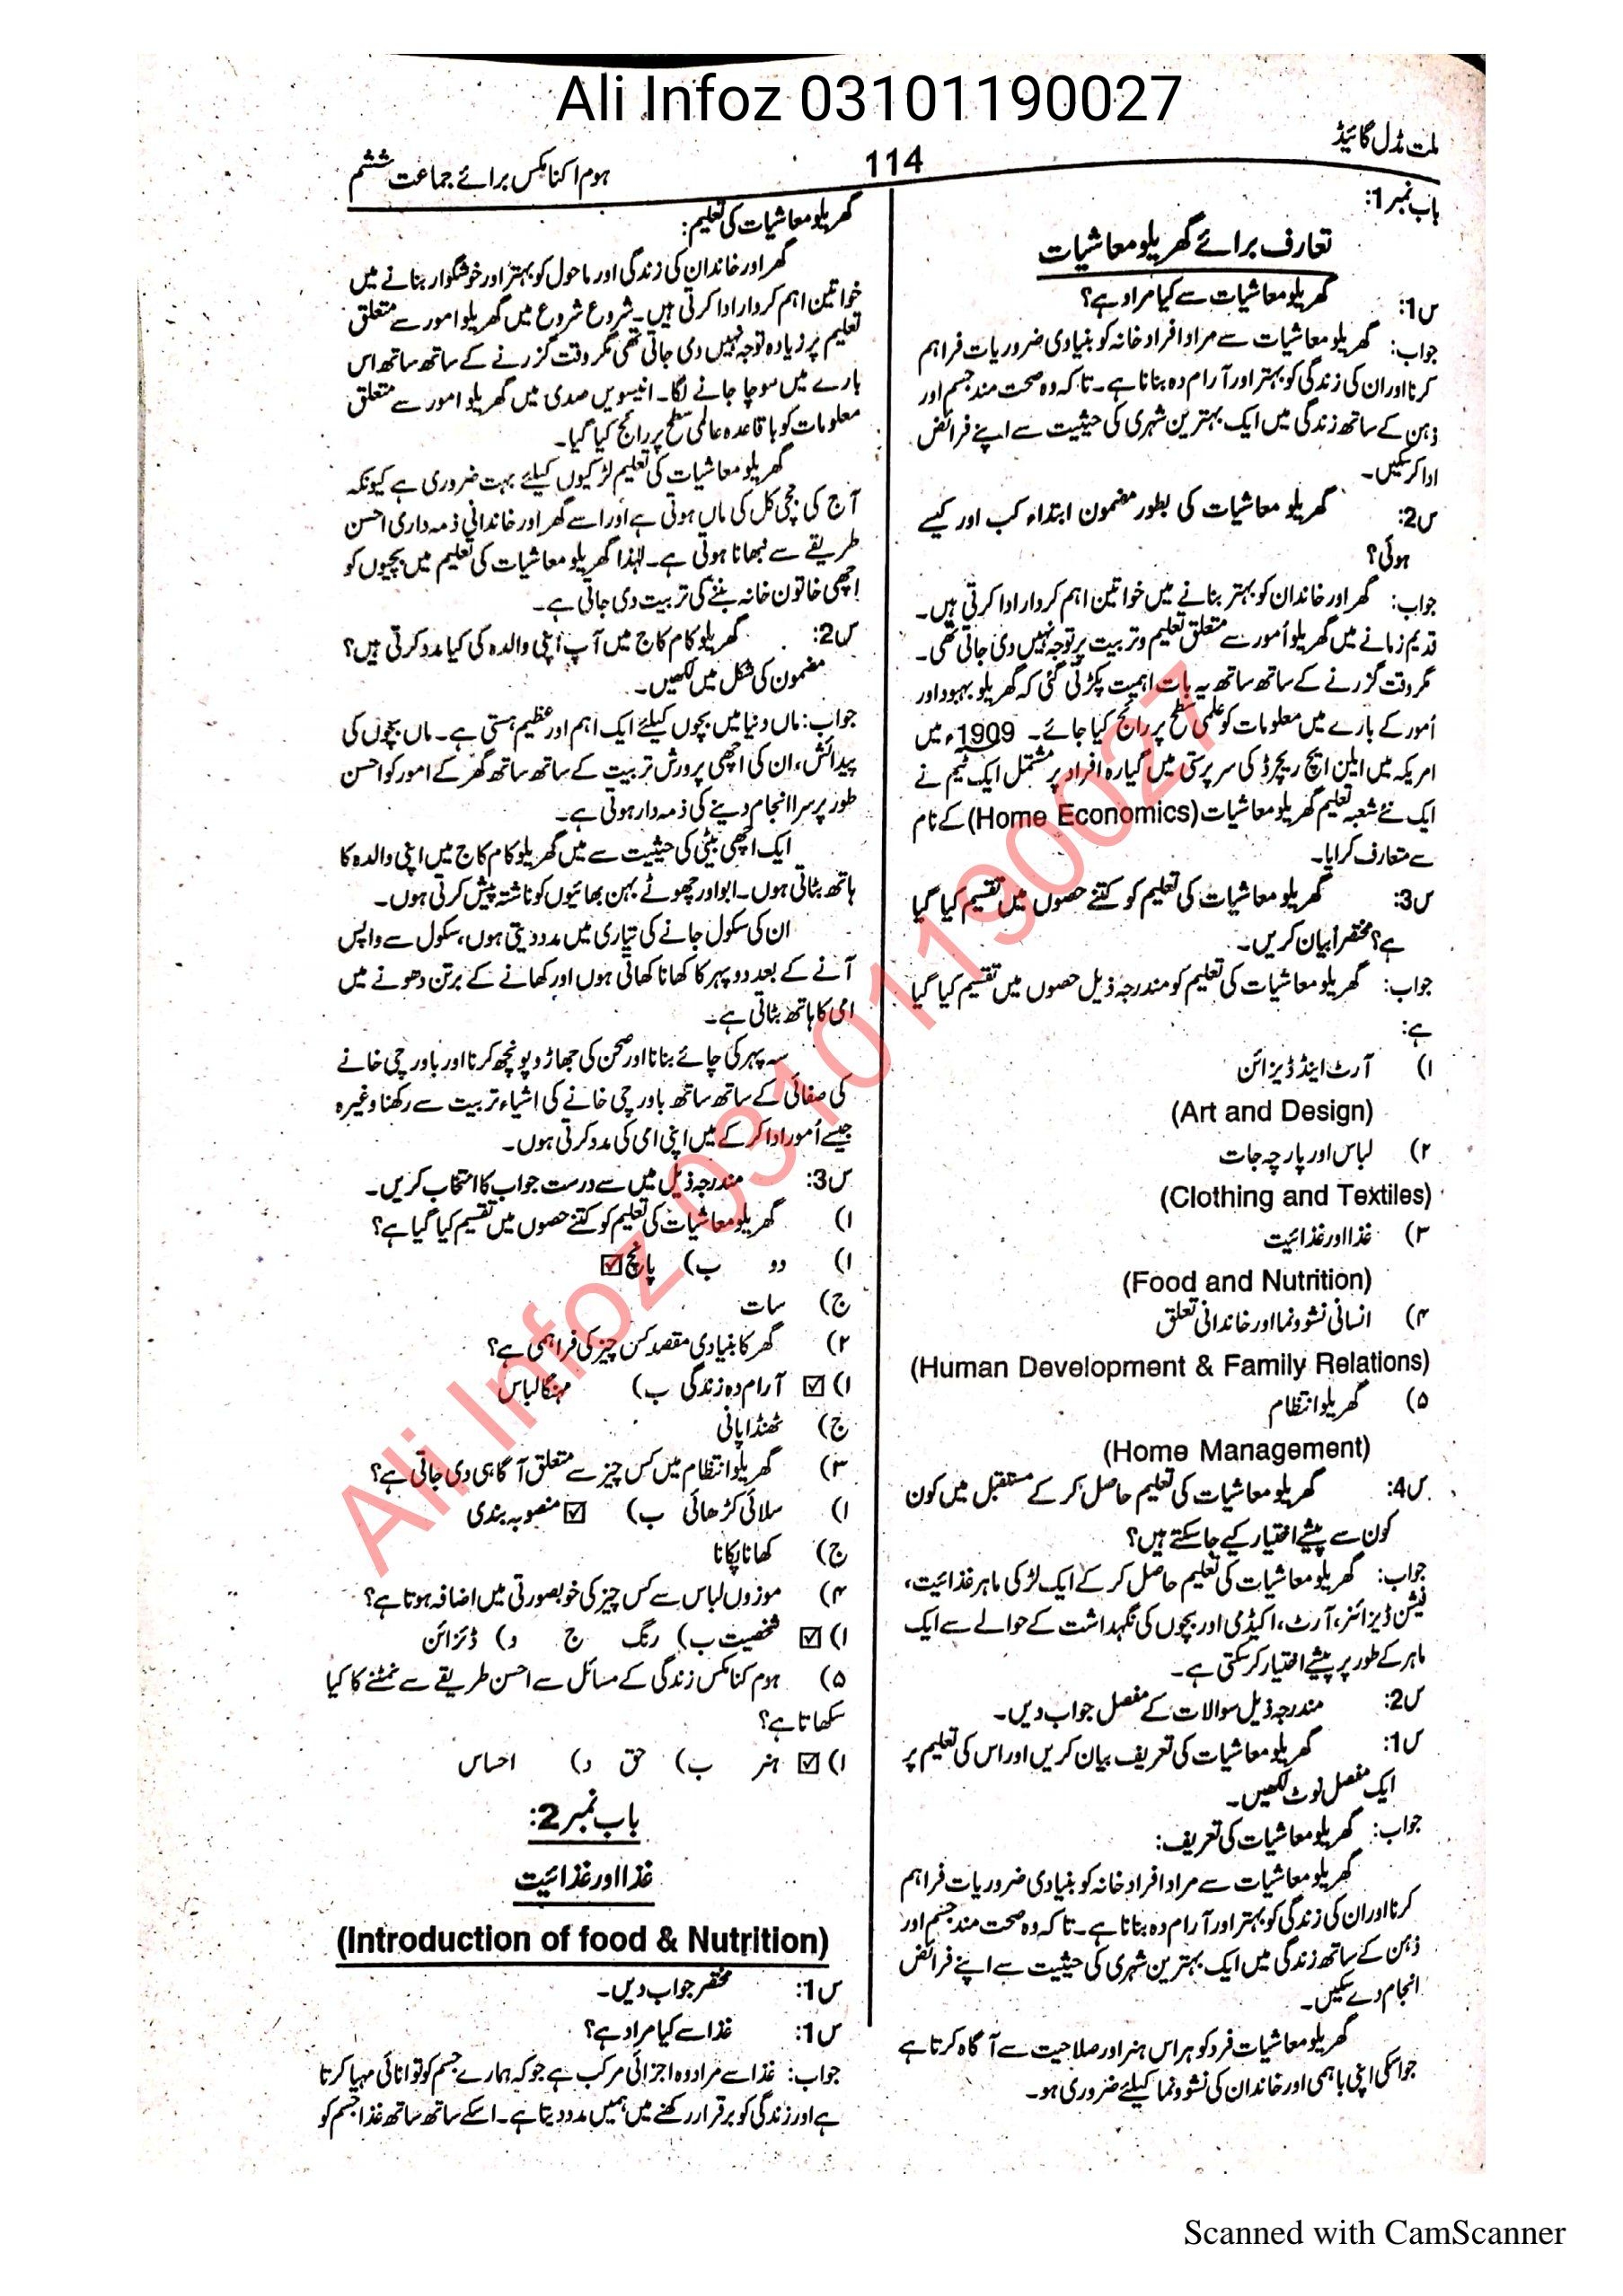 Ali Infoz 03101190027
ملت مڈل گائیڈ
114
ہوم اکنامکس برائے جماعت ششم
باب نمبر 1:
تعارف برائے گھریلو معاشیات
س1: گھریلو معاشیات سے کیا مراد ہے؟
جواب: گھریلو معاشیات سے مراد افراد خانہ کو بنیادی ضروریات فراہم
کرنا اور ان کی زندگی کو بہتر اور آرام دہ بنانا ہے۔ تاکہ وہ صحت مند جسم اور
ذہن کے ساتھ زندگی میں ایک بہترین شہری کی حیثیت سے اپنے فرائض
ادا کر سکیں۔
س2: گھریلو معاشیات کی بطور مضمون ابتداء کب اور کیسے
ہوئی؟
جواب: گھر اور خاندان کو بہتر بنانے میں خواتین اہم کردار ادا کرتی ہیں۔
قدیم زمانے میں گھریلو اُمور سے متعلق تعلیم و تربیت پر توجہ نہیں دی جاتی تھی۔
مگر وقت گزرنے کے ساتھ ساتھ یہ بات اہمیت پکڑتی گئی کہ گھریلو بہبود اور
اُمور کے بارے میں معلومات کو علمی سطح پر رائج کیا جائے۔ 1909ء میں
امریکہ میں ایلن ایچ ریچرڈ کی سرپرستی میں گیارہ افراد پر مشتمل ایک ٹیم نے
ایک نئے شعبہ تعلیم گھریلو معاشیات (Home Economics) کے نام
سے متعارف کرایا۔
س3: گھریلو معاشیات کی تعلیم کو کتنے حصوں میں تقسیم کیا گیا
ہے؟ مختصراً بیان کریں۔
جواب: گھریلو معاشیات کی تعلیم کو مندرجہ ذیل حصوں میں تقسیم کیا گیا
ہے:
۱) آرٹ اینڈ ڈیزائن
(Art and Design)
۲) لباس اور پارچہ جات
(Clothing and Textiles)
۳) غذا اور غذائیت
(Food and Nutrition)
۴) انسانی نشوونما اور خاندانی تعلق
(Human Development & Family Relations)
۵) گھریلو انتظام
(Home Management)
س4: گھریلو معاشیات کی تعلیم حاصل کر کے مستقبل میں کون
کون سے پیشے اختیار کیے جا سکتے ہیں؟
جواب: گھریلو معاشیات کی تعلیم حاصل کر کے ایک لڑکی ماہر غذائیت،
فیشن ڈیزائنر، آرٹ، اکیڈمی اور بچوں کی نگہداشت کے حوالے سے ایک
ماہر کے طور پر پیشے اختیار کر سکتی ہے۔
س2: مندرجہ ذیل سوالات کے مفصل جواب دیں۔
س1: گھریلو معاشیات کی تعریف بیان کریں اور اس کی تعلیم پر
ایک مفصل نوٹ لکھیں۔
جواب: گھریلو معاشیات کی تعریف:
گھریلو معاشیات سے مراد افراد خانہ کو بنیادی ضروریات فراہم
کرنا اور ان کی زندگی کو بہتر اور آرام دہ بنانا ہے۔ تاکہ وہ صحت مند جسم اور
ذہن کے ساتھ زندگی میں ایک بہترین شہری کی حیثیت سے اپنے فرائض
انجام دے سکیں۔
گھریلو معاشیات فرد کو ہر اس ہنر اور صلاحیت سے آگاہ کرتا ہے
جو اسکی اپنی باہمی اور خاندان کی نشوونما کیلئے ضروری ہو۔
گھریلو معاشیات کی تعلیم:
گھر اور خاندان کی زندگی اور ماحول کو بہتر اور خوشگوار بنانے میں
خواتین اہم کردار ادا کرتی ہیں۔ شروع شروع میں گھریلو امور سے متعلق
تعلیم پر زیادہ توجہ نہیں دی جاتی تھی مگر وقت گزرنے کے ساتھ ساتھ اس
بارے میں سوچا جانے لگا۔ انیسویں صدی میں گھریلو امور سے متعلق
معلومات کو باقاعدہ عالمی سطح پر رائج کیا گیا۔
گھریلو معاشیات کی تعلیم لڑکیوں کیلئے بہت ضروری ہے کیونکہ
آج کی بچی کل کی ماں ہوتی ہے اور اسے گھر اور خاندانی ذمہ داری احسن
طریقے سے نبھانا ہوتی ہے۔ لہٰذا گھریلو معاشیات کی تعلیم میں بچیوں کو
اچھی خاتون خانہ بننے کی تربیت دی جاتی ہے۔
س2: گھریلو کام کاج میں آپ اپنی والدہ کی کیا مدد کرتی ہیں؟
مضمون کی شکل میں لکھیں۔
جواب: ماں دنیا میں بچوں کیلئے ایک اہم اور عظیم ہستی ہے۔ ماں بچوں کی
پیدائش، ان کی اچھی پرورش تربیت کے ساتھ ساتھ گھر کے امور کو احسن
طور پر سرا انجام دینے کی ذمہ دار ہوتی ہے۔
ایک اچھی بیٹی کی حیثیت سے میں گھریلو کام کاج میں اپنی والدہ کا
ہاتھ بٹاتی ہوں۔ ابو اور چھوٹے بہن بھائیوں کو ناشتہ پیش کرتی ہوں۔
ان کی سکول جانے کی تیاری میں مدد دیتی ہوں، سکول سے واپس
آنے کے بعد دوپہر کا کھانا کھاتی ہوں اور کھانے کے برتن دھونے میں
امی کا ہاتھ بٹاتی ہے۔
سہ پہر کی چائے بنانا اور صحن کی جھاڑو پونچھ کرنا اور باورچی خانے
کی صفائی کے ساتھ ساتھ باورچی خانے کی اشیاء تربیت سے رکھنا وغیرہ
جیسے اُمور ادا کر کے میں اپنی امی کی مدد کرتی ہوں۔
س3: مندرجہ ذیل میں سے درست جواب کا انتخاب کریں۔
۱) گھریلو معاشیات کی تعلیم کو کتنے حصوں میں تقسیم کیا گیا ہے؟
ا) دو ب) پانچ ☑
ج) سات
۲) گھر کا بنیادی مقصد کس چیز کی فراہمی ہے؟
ا) ☑ آرام دہ زندگی ب) مہنگا لباس
ج) ٹھنڈا پانی
۳) گھریلو انتظام میں کس چیز سے متعلق آگاہی دی جاتی ہے؟
ا) سلائی کڑھائی ب) ☑ منصوبہ بندی
ج) کھانا پکانا
۴) موزوں لباس سے کس چیز کی خوبصورتی میں اضافہ ہوتا ہے؟
ا) ☑ شخصیت ب) رنگ ج د) ڈئزائن
۵) ہوم کنامکس زندگی کے مسائل سے احسن طریقے سے نمٹنے کا کیا
سکھاتا ہے؟
ا) ☑ ہنر ب) حق د) احساس
باب نمبر 2:
غذا اور غذائیت
(Introduction of food & Nutrition)
س1: مختصر جواب دیں۔
س1: غذا سے کیا مراد ہے؟
جواب: غذا سے مراد وہ اجزائی مرکب ہے جو کہ ہمارے جسم کو توانائی مہیا کرتا
ہے اور زندگی کو برقرار رکھنے میں ہمیں مدد دیتا ہے۔ اسکے ساتھ ساتھ غذا جسم کو
Ali Infoz 03101190027
Scanned with CamScanner